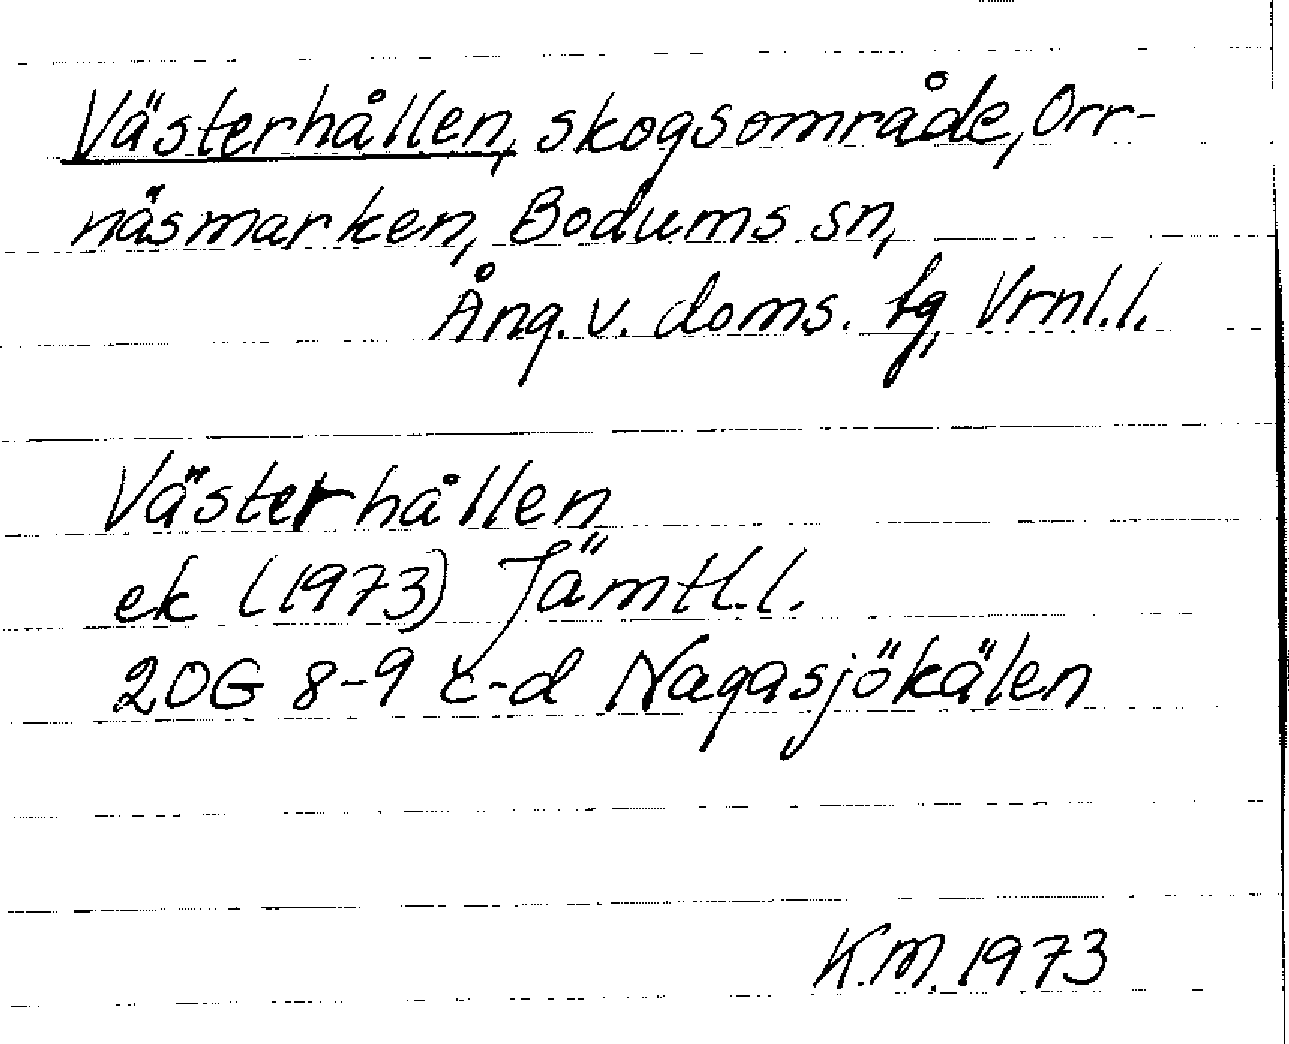 Västerhållen, skogsområde, Orr-
näsmarken, Bodums sn,
Ång. v. doms. tg, Vrnl.l.
Västerhållen
ek (1973) Jämtl.l.
20G 8-9 c-d Nagasjökälen
K.M. 1973